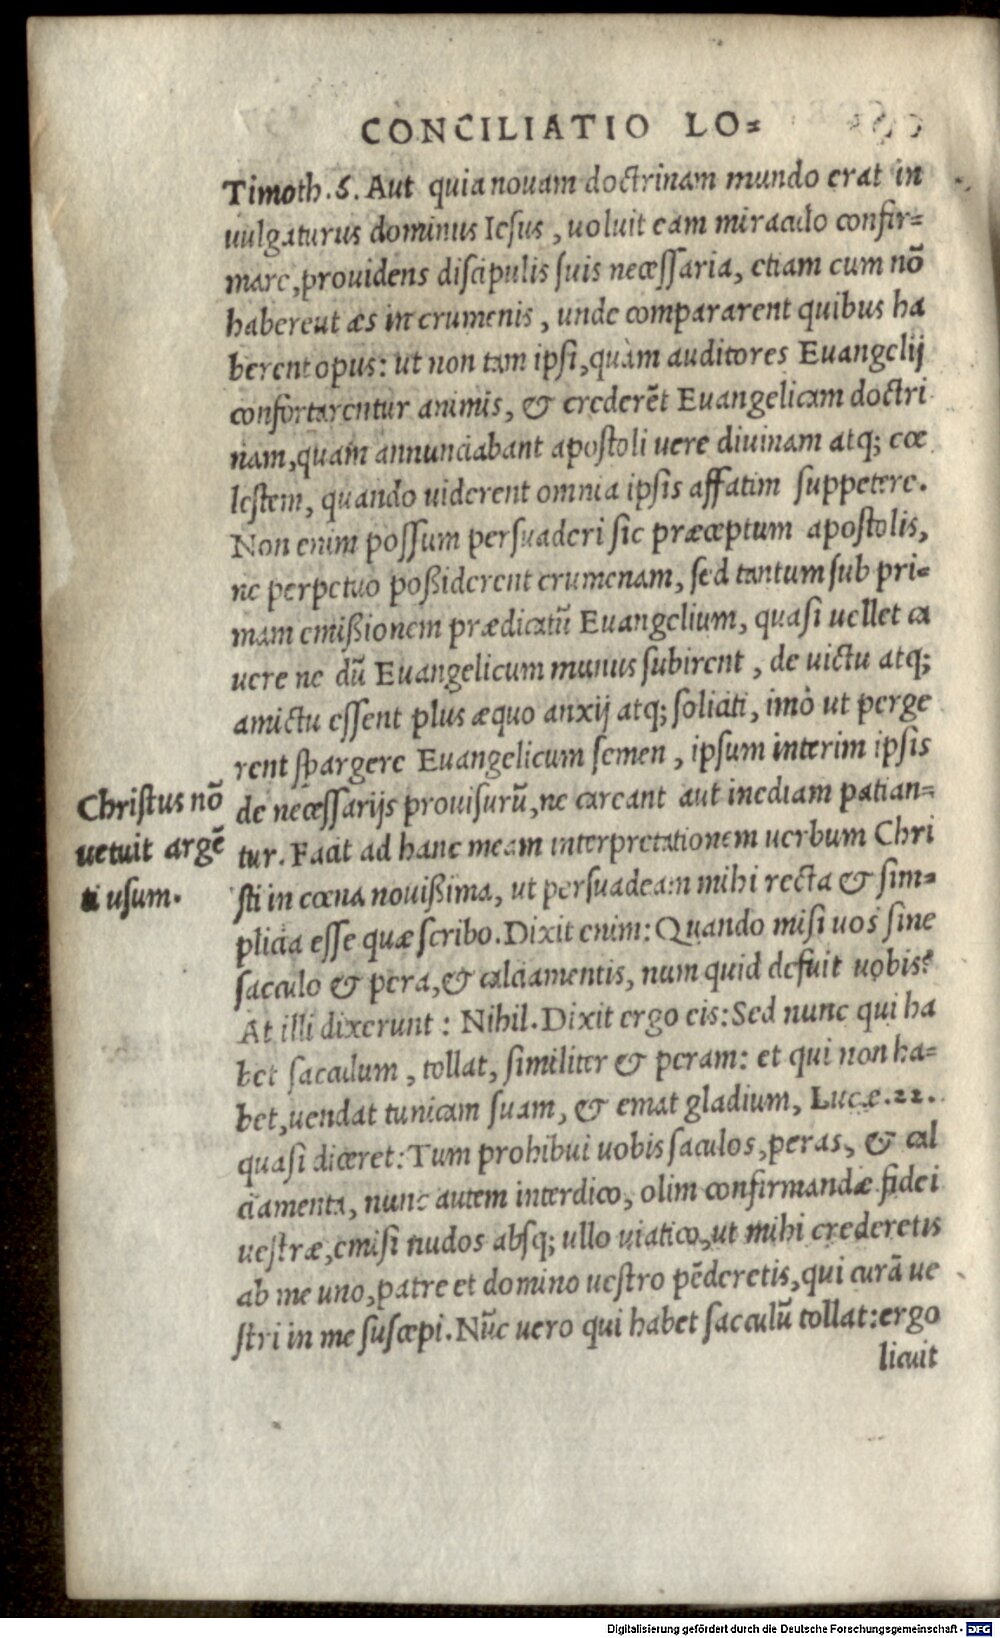 CONCILIATIO LO⸗
Timoth.5. Aut quia nouam doctrinam mundo erat in
uulgaturus dominus Iesus, uoluit eam miraculo confir⸗
mare, prouidens discipulis suis necessaria, etiam cum nō
habereut æs in crumenis, unde compararent quibus ha
berent opus: ut non tam ipsi, quàm auditores Euangelij
confortarentur animis, & crederēt Euangelicam doctri
nam, quam annunciabant apostoli uere diuinam atq; cœ
lestem, quando uiderent omnia ipsis affatim suppetere.
Non enim possum persuaderi sic præceptum apostolis,
ne perpetuo poßiderent crumenam, sed tantum sub pri⸗
mam emißionem prædicatū Euangelium, quasi uellet ca
uere ne dū Euangelicum munus subirent, de uictu atq;
amictu essent plus æquo anxij atq; soliciti, imò ut perge
rent spargere Euangelicum semen, ipsum interim ipsis
de necessarijs prouisurū, ne careant aut inediam patian⸗
tur. Facit ad hanc meam interpretationem uerbum Chri
sti in cœna nouißima, ut persuadeam mihi recta & sim⸗
plicia esse quæ scribo. Dixit enim: Quando misi uos sine
sacculo & pera, & calciamentis, num quid defuit uobis?
At illi dixerunt: Nihil. Dixit ergo eis: Sed nunc qui ha
bet sacculum, tollat, similiter & peram: et qui non ha⸗
bet, uendat tunicam suam, & emat gladium, Lucæ.22.
quasi diceret: Tum prohibui uobis saculos, peras, & cal
ciamenta, nunc autem interdico, olim confirmandæ fidei
uestræ, emisi nudos absq; ullo uiatico, ut mihi crederetis
ab me uno, patre et domino uestro pēderetis, qui curā ue
stri in me suscepi. Nūc uero qui habet sacculū tollat: ergo
licuit
Christus nō
uetuit argē
ti usum.
Digitalisierung gefördert durch die Deutsche Forschungsgemeinschaft - DFG